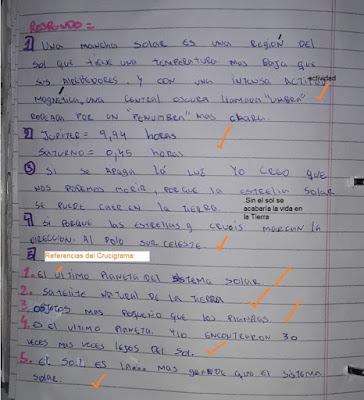 RESPUNDO =
1) Una mancha solar es una región del
sol que tiene una temperatura mas baja que
sus alrededores, y con una intensa activi actividad
magnetica, una central oscura llamada "umbra"
rodeada por un "penumbra" mas clara.
2) Jupiter = 9,94 horas
Saturno = 0,45 horas
3) Si se apaga la luz yo creo que
nos podemos morir, porque la estrella solar
se puede caer en la tierra.
Sin el sol se
acabaría la vida en
la Tierra
4) Si porque las estrellas y crucis marcan la
direccion al polo sur celeste
5) Referencias del Crucigrama:
1. El último planeta del sistema solar
2. Satelite natural de la tierra
3. Objetos mas pequeño que los planetas
4. O el ultimo planeta. y lo encontraron 30
veces mas veces lejos del sol.
5. El sol es mas grande que el sistema
solar.